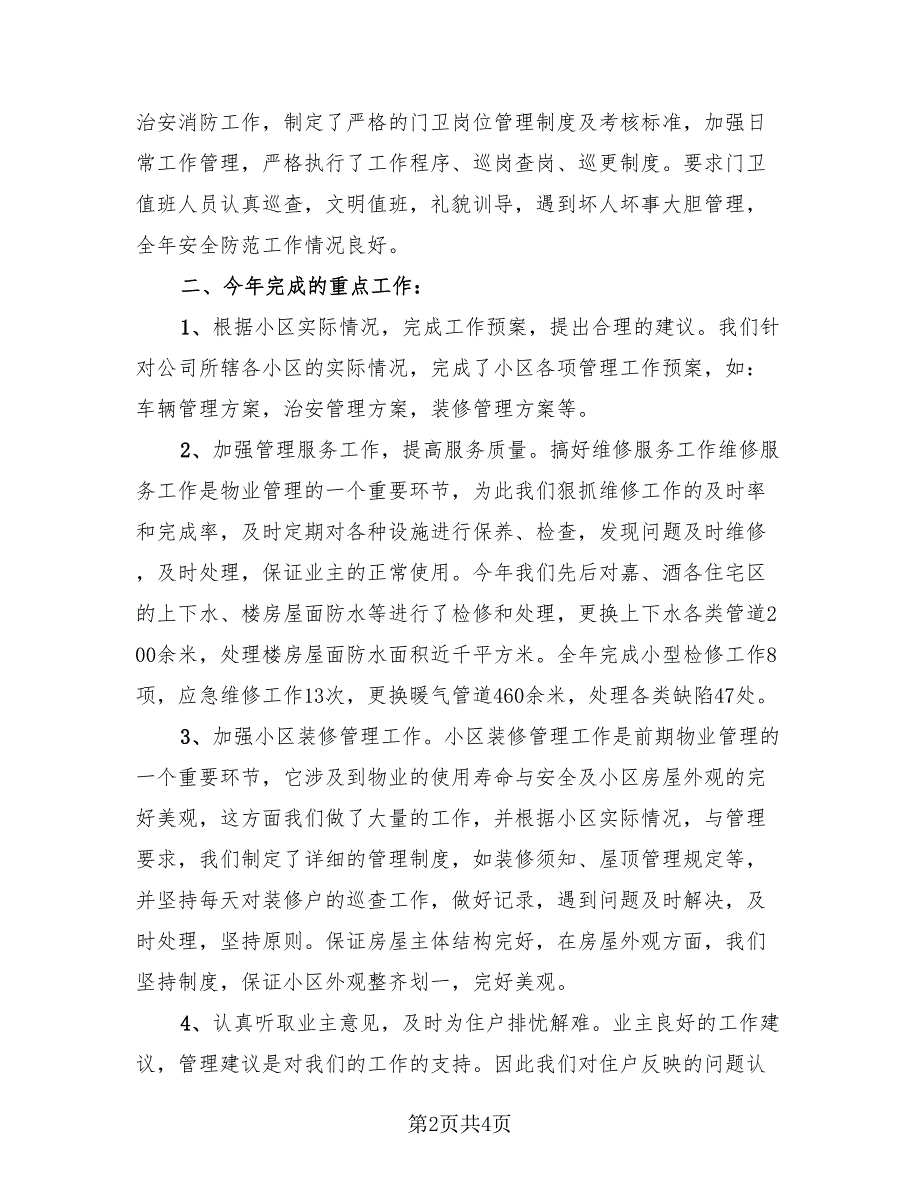 治安消防工作，制定了严格的门卫岗位管理制度及考核标准，加强日
常工作管理，严格执行了工作程序、巡岗查岗、巡更制度。要求门卫
值班人员认真巡查，文明值班，礼貌训导，遇到坏人坏事大胆管理，
全年安全防范工作情况良好。
二、今年完成的重点工作：
1、根据小区实际情况，完成工作预案，提出合理的建议。我们针
对公司所辖各小区的实际情况，完成了小区各项管理工作预案，如：
车辆管理方案，治安管理方案，装修管理方案等。
2、加强管理服务工作，提高服务质量。搞好维修服务工作维修服
务工作是物业管理的一个重要环节，为此我们狠抓维修工作的及时率
和完成率，及时定期对各种设施进行保养、检查，发现问题及时维修
，及时处理，保证业主的正常使用。今年我们先后对嘉、酒各住宅区
的上下水、楼房屋面防水等进行了检修和处理，更换上下水各类管道2
00余米，处理楼房屋面防水面积近千平方米。全年完成小型检修工作8
项，应急维修工作13次，更换暖气管道460余米，处理各类缺陷47处。
3、加强小区装修管理工作。小区装修管理工作是前期物业管理的
一个重要环节，它涉及到物业的使用寿命与安全及小区房屋外观的完
好美观，这方面我们做了大量的工作，并根据小区实际情况，与管理
要求，我们制定了详细的管理制度，如装修须知、屋顶管理规定等，
并坚持每天对装修户的巡查工作，做好记录，遇到问题及时解决，及
时处理，坚持原则。保证房屋主体结构完好，在房屋外观方面，我们
坚持制度，保证小区外观整齐划一，完好美观。
4、认真听取业主意见，及时为住户排忧解难。业主良好的工作建
议，管理建议是对我们的工作的支持。因此我们对住户反映的问题认
第2页共4页